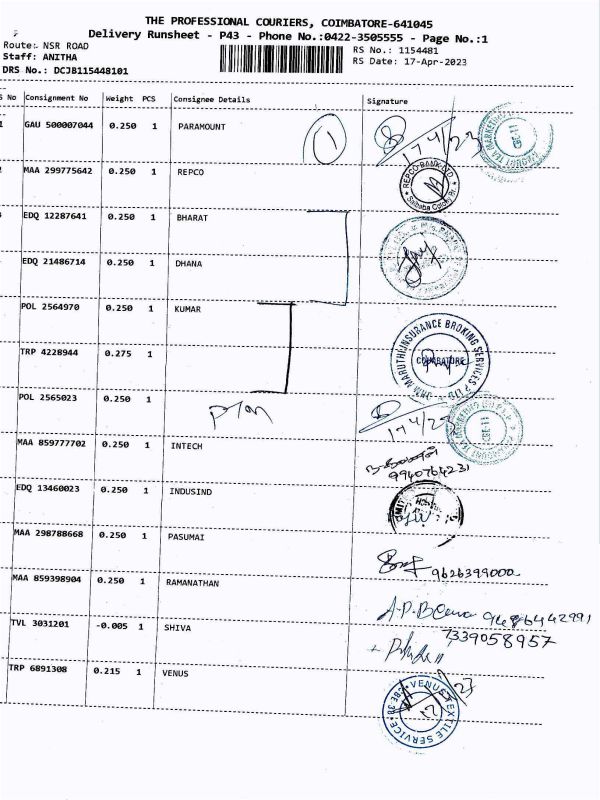 THE PROFESSIONAL COURIERS, COIMBATORE-641045
Delivery Runsheet - P43 - Phone No.:0422-3505555 - Page No.:1
Route:- NSR ROAD
RS No.: 1154481
Staff: ANITHA
RS Date: 17-Apr-2023
DRS No.: DCJB115448101
S No Consignment No Weight PCS Consignee Details Signature
1 GAU 500007044 0.250 1 PARAMOUNT 1
17/4/23
MAA 299775642 0.250 1 REPCO
REPCO BANK LTD
EDQ 12287641 0.250 1 BHARAT
EDQ 21486714 0.250 1 DHANA
POL 2564970 0.250 1 KUMAR
TRP 4228944 0.275 1
MARUTHI INSURANCE BROKING SERVICES P LTD
COIMBATORE
POL 2565023 0.250 1
17/4/23
MAA 859777702 0.250 1 INTECH
9940764231
EDQ 13460023 0.250 1 INDUSIND
MAA 298788668 0.250 1 PASUMAI
9626399000
MAA 859398904 0.250 1 RAMANATHAN
9486442991
7339058957
TVL 3031201 -0.005 1 SHIVA
TRP 6891308 0.215 1 VENUS
VENUS TEXTILE SERVICE